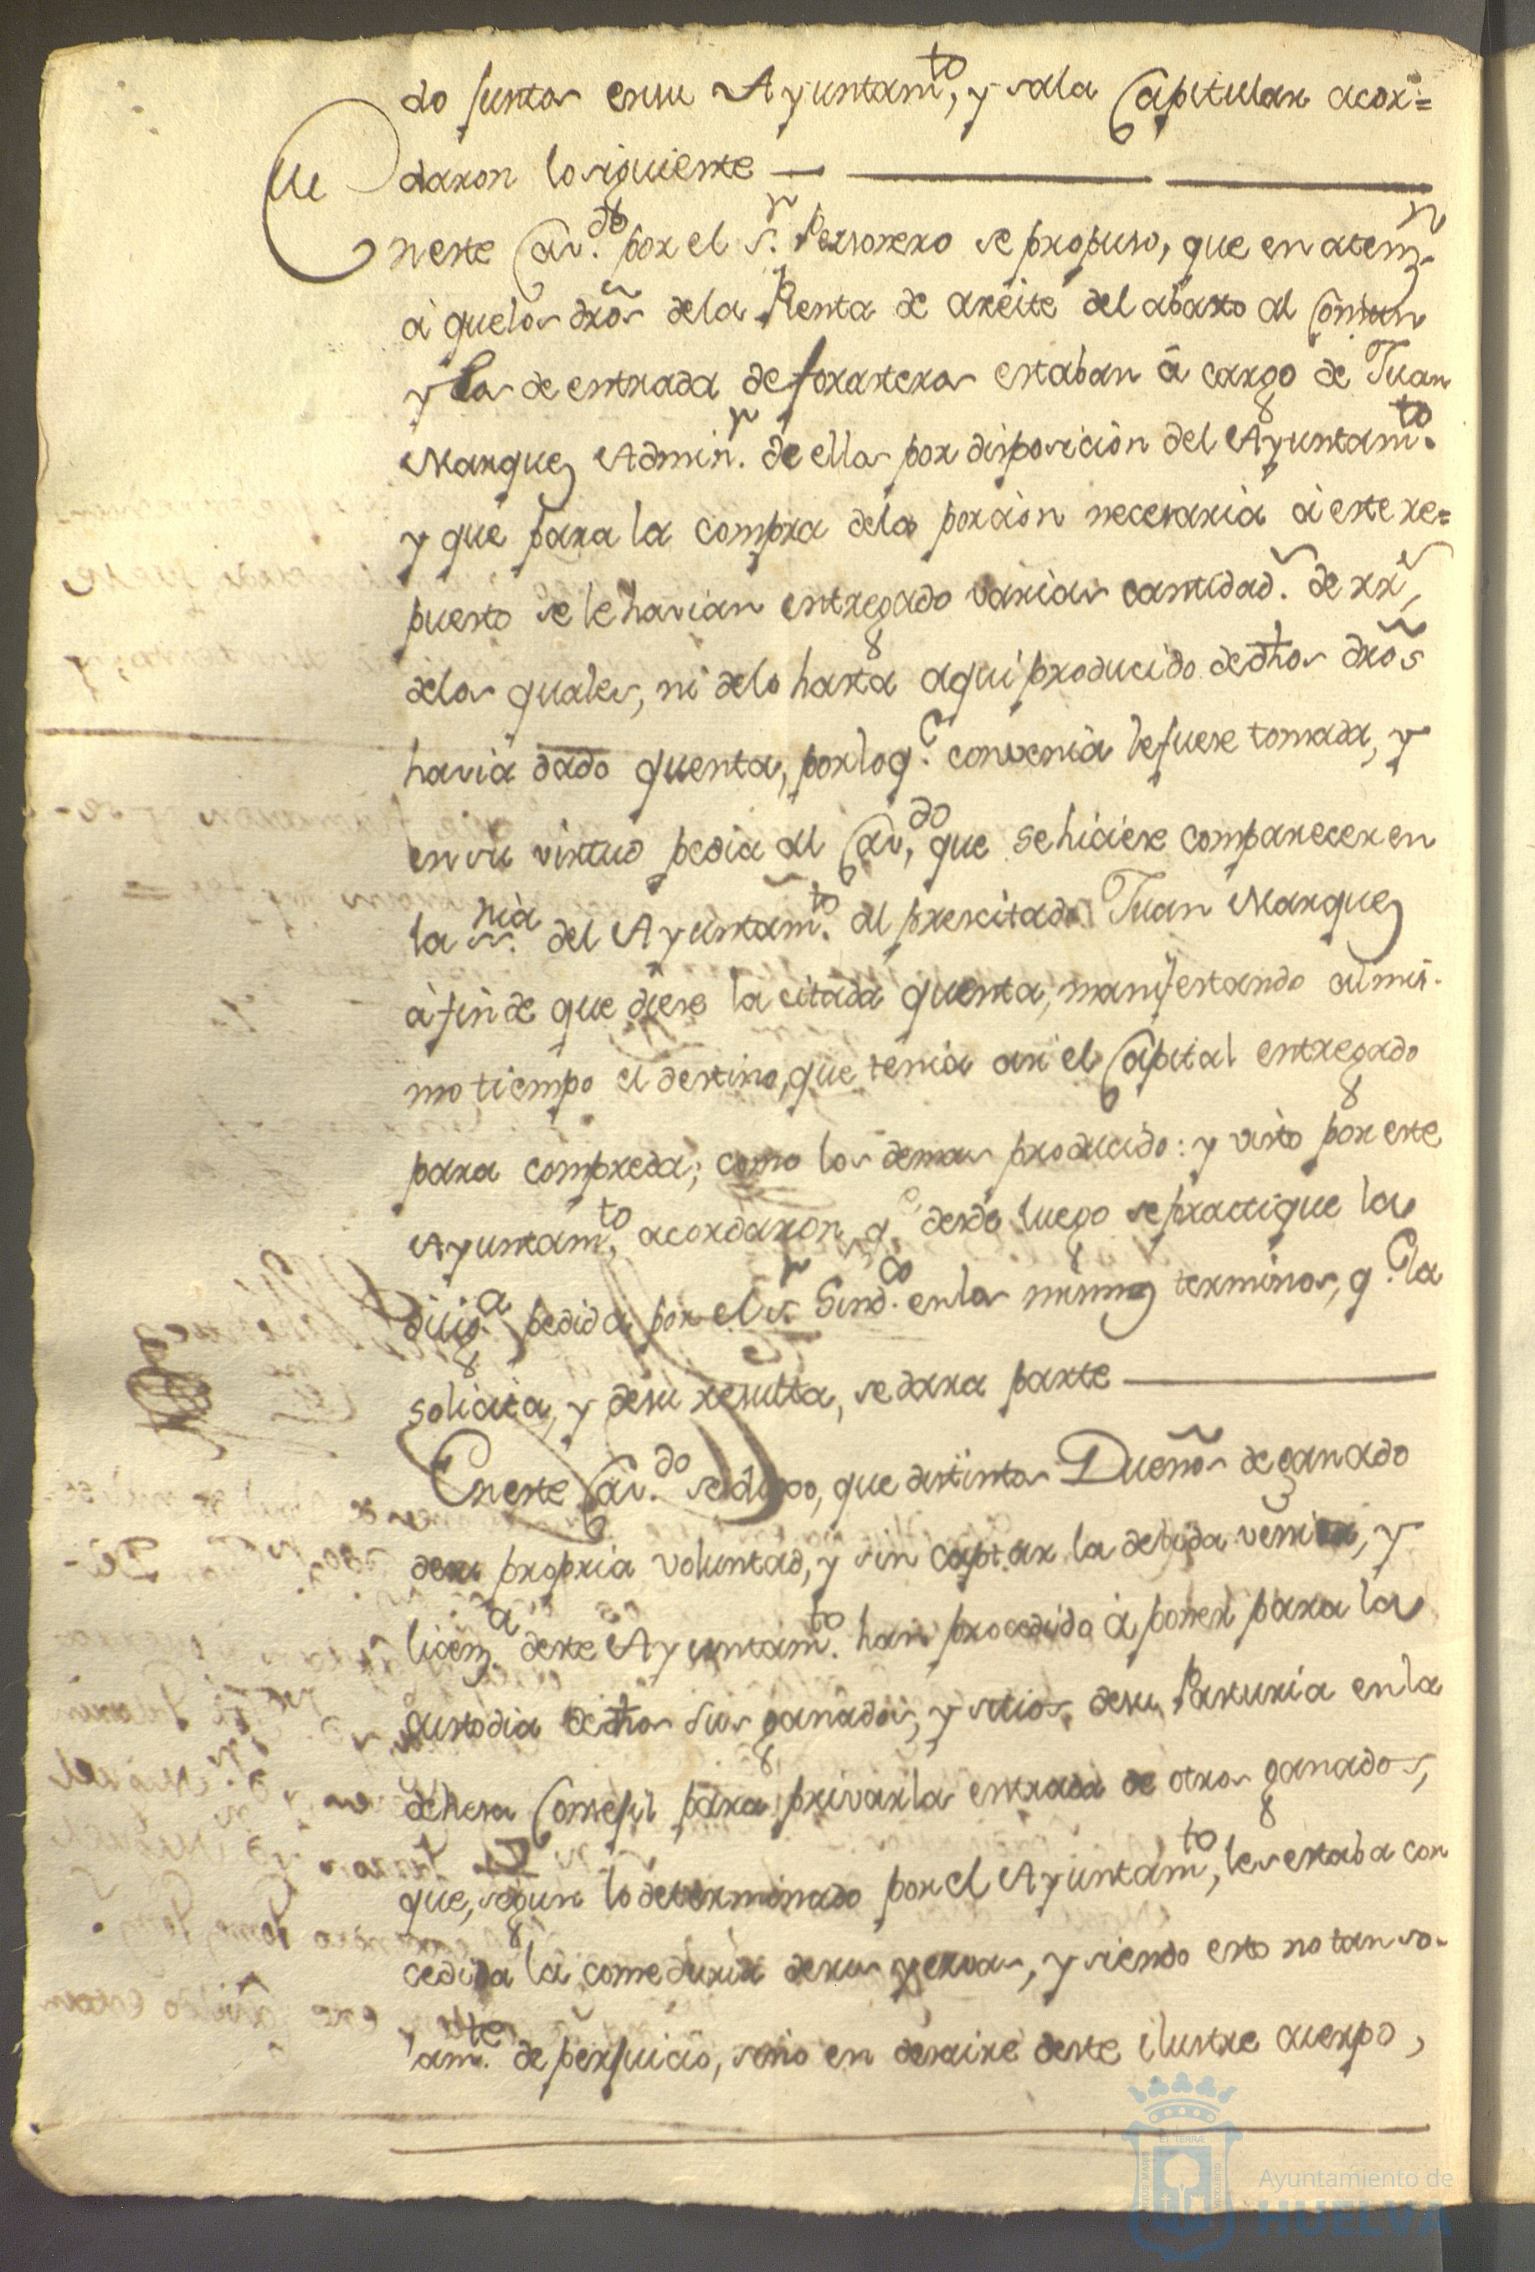 do juntos ensu Ayuntamto, y sala Capitular acor=
daron lo siguiente
Eneste Cavdo por el sr. Personero se propuso, que en atenzn
à quelos dros dela Renta de azeite del abasto al Comun
y los de entrada de forasteros estaban à cargo de Juan
Marquez Adminr. de ellos por disposicion del Ayuntamto.
y que para la compra dela porcion necesaria à este re=
puesto se le havian entregado varias cantidads. de rrs,
delos quales, ni delo hasta aqui producido dedhos dros
havia dado quenta, porloqe. convenia lefuese tomada, y
en su virtud pedia al Cavdo, que se hiciese comparecer en
la snia. del Ayuntamto. al precitado Juan Marquez
à fin de que diese la citada quenta, manifestando almis-
mo tiempo el destino, que tenia asi el Capital entregado
para compreda; como los demas producido: y visto por este
Ayuntamto, acordaron qe desde luego se practique la
diliga. pedida por el sr. Sindco. en los mismos terminos, qe. la
solicita, y desu resulta, se dara parte
Eneste Cavdo. se dixo, que distintos Dueños de ganado
desu propria voluntad, y sin captar la debida venia, y
licenza. deste Ayuntamto. han procedido à poner para la
custodia dedhos sus ganados, y sitios desu Pasturia en la
dehesa Consejil para privar la entrada de otros ganados,
que, segun lo determinado por el Ayuntamto, les estaba con
cedida la comeduria desus yervas, y siendo esto no tan so-
amte. de perjuicio, sino en desaire deste ilustre cuerpo,
Ayuntamiento de
HUELVA